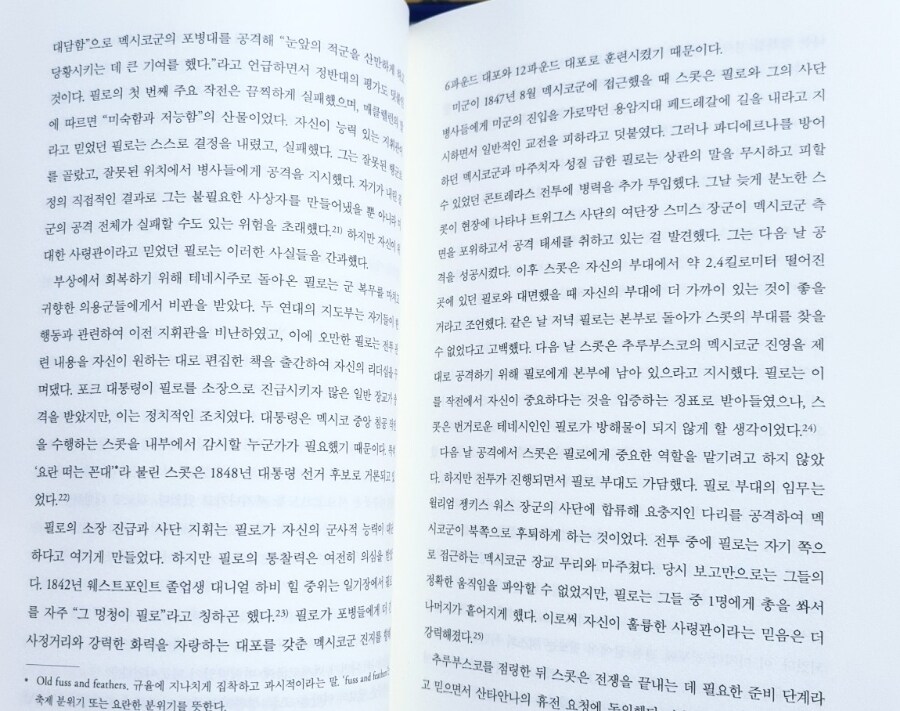 대담함”으로 멕시코군의 포병대를 공격해 “눈앞의 적군을 산만하게 하고
당황시키는 데 큰 기여를 했다.”라고 언급하면서 정반대의 평가도
것이다. 필로의 첫 번째 주요 작전은 끔찍하게 실패했으며, 매클렐런의
에 따르면 “미숙함과 저능함”의 산물이었다. 자신이 능력 있는
라고 믿었던 필로는 스스로 결정을 내렸고, 실패했다. 그는 잘못된
를 골랐고, 잘못된 위치에서 병사들에게 공격을 지시했다. 자기가 내린
정의 직접적인 결과로 그는 불필요한 사상자를 만들어냈을 뿐 아니라
군의 공격 전체가 실패할 수도 있는 위험을 초래했다.21) 하지만 자신이
대한 사령관이라고 믿었던 필로는 이러한 사실들을 간과했다.
부상에서 회복하기 위해 테네시주로 돌아온 필로는 군 복무를 마치고
귀향한 의용군들에게서 비판을 받았다. 두 연대의 지도부는 자기들이
행동과 관련하여 이전 지휘관을 비난하였고, 이에 오만한 필로는 전투
련 내용을 자신이 원하는 대로 편집한 책을 출간하여 자신의 리더십을
며댔다. 포크 대통령이 필로를 소장으로 진급시키자 많은 일반 장교가
격을 받았지만, 이는 정치적인 조치였다. 대통령은 멕시코 중앙 침공
을 수행하는 스콧을 내부에서 감시할 누군가가 필요했기 때문이다.
‘요란 떠는 꼰대’*라 불린 스콧은 1848년 대통령 선거 후보로 거론되고
었다.22)
필로의 소장 진급과 사단 지휘는 필로가 자신의 군사적 능력이
하다고 여기게 만들었다. 하지만 필로의 통찰력은 여전히 의심을
다. 1842년 웨스트포인트 졸업생 대니얼 하비 힐 중위는 일기장에서
를 자주 “그 멍청이 필로”라고 칭하곤 했다.23) 필로가 포병들에게 더
사정거리와 강력한 화력을 자랑하는 대포를 갖춘 멕시코군 진지를
* Old fuss and feathers. 규율에 지나치게 집착하고 과시적이라는 말. ‘fuss and feathers’
축제 분위기 또는 요란한 분위기를 뜻한다.
6파운드 대포와 12파운드 대포로 훈련시켰기 때문이다.
미군이 1847년 8월 멕시코군에 접근했을 때 스콧은 필로와 그의 사단
병사들에게 미군의 진입을 가로막던 용암지대 페드레갈에 길을 내라고 지
시하면서 일반적인 교전을 피하라고 덧붙였다. 그러나 파디에르나를 방어
하던 멕시코군과 마주치자 성질 급한 필로는 상관의 말을 무시하고 피할
수 있었던 콘트레라스 전투에 병력을 추가 투입했다. 그날 늦게 분노한 스
콧이 현장에 나타나 트위그스 사단의 여단장 스미스 장군이 멕시코군 측
면을 포위하고서 공격 태세를 취하고 있는 걸 발견했다. 그는 다음 날 공
격을 성공시켰다. 이후 스콧은 자신의 부대에서 약 2.4킬로미터 떨어진
곳에 있던 필로와 대면했을 때 자신의 부대에 더 가까이 있는 것이 좋을
거라고 조언했다. 같은 날 저녁 필로는 본부로 돌아가 스콧의 부대를 찾을
수 없었다고 고백했다. 다음 날 스콧은 추루부스코의 멕시코군 진영을 제
대로 공격하기 위해 필로에게 본부에 남아 있으라고 지시했다. 필로는 이
를 작전에서 자신이 중요하다는 것을 입증하는 징표로 받아들였으나, 스
콧은 번거로운 테네시인인 필로가 방해물이 되지 않게 할 생각이었다.24)
다음 날 공격에서 스콧은 필로에게 중요한 역할을 맡기려고 하지 않았
다. 하지만 전투가 진행되면서 필로 부대도 가담했다. 필로 부대의 임무는
윌리엄 젱키스 워스 장군의 사단에 합류해 요충지인 다리를 공격하여 멕
시코군이 북쪽으로 후퇴하게 하는 것이었다. 전투 중에 필로는 자기 쪽으
로 접근하는 멕시코군 장교 무리와 마주쳤다. 당시 보고만으로는 그들의
정확한 움직임을 파악할 수 없었지만, 필로는 그들 중 1명에게 총을 쏴서
나머지가 흩어지게 했다. 이로써 자신이 훌륭한 사령관이라는 믿음은 더
강력해졌다.25)
추루부스코를 점령한 뒤 스콧은 전쟁을 끝내는 데 필요한 준비 단계라
고 믿으면서 산타안나의 휴전 요청에 동의했다.